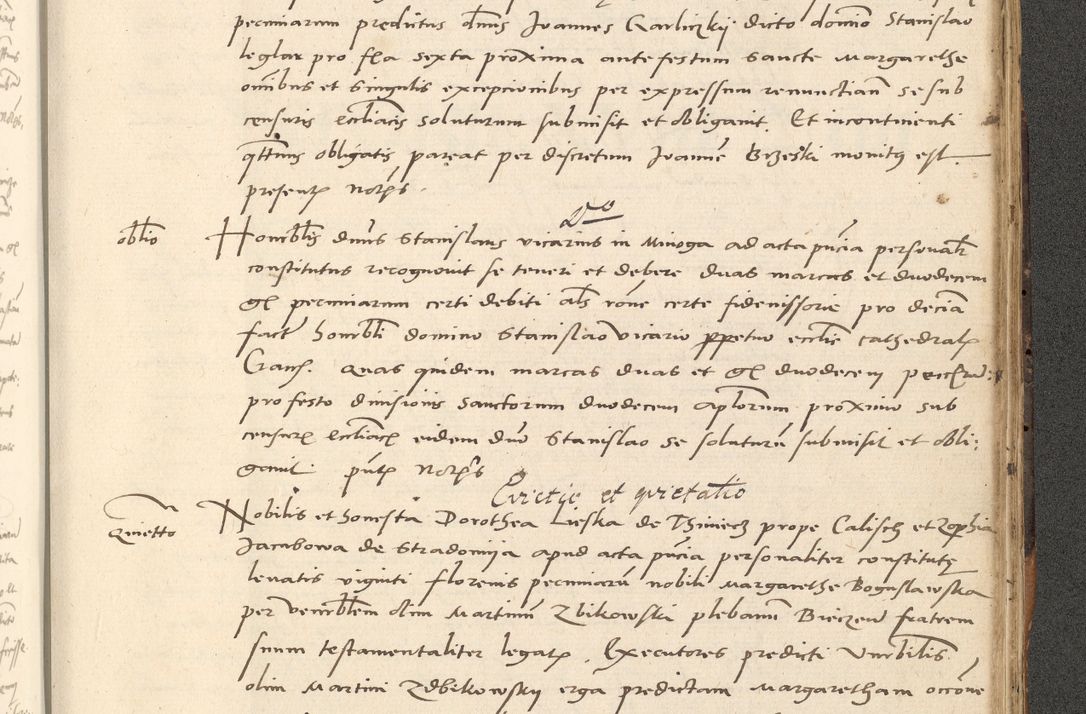 pecuniarum predictus dns Joannes Garliczkij dicto domino Stanislao
leglar pro fla sexta proxima ante festum Sancte Margarethe
omibus et singulis excepcionibus per expressum renunctian se sub
censuris ecctiacis soluturum submisit et obligauit. Et incontinenti
qttinus obligatis pareat per discretum Joanne Brzeski monitus est
present Notrs.
Do
oblio
Honorblis dnus Stanislaus vicarius in Minoga ad acta pncia personalr
constitutus recognouit se teneri et debere duas marcas et duodecem
gr pecuniarum certi debiti als rone certe fideiussorie pro decia
fact honorbli domino Stanislao vicario ppetuo ecclie cathedral
Crac. Quas quidem marcas duas et gr duodecem
pro festo diuisionis sanctorum duodecem aplorum proximo sub
censur ecctiac eidem dno Stanislao se soluturu submisit et obli:
gauit. pnt Notrs
Evictio et qvietatio
Quietto
Nobilis et honesta Dorothea Lieska de Thiniecz prope Calisch et Zophia
Jacubowa de Stradomija apud acta pncia personaliter constitute
leuatis viginti florenis pecuniaru nobili Margarethe Boguslawska
per venerblem olim Martinu Zbikowski plebanu Bieczen fratrem
suum testamentaliter legat. Executores predicti Venrbilis
olim Martini Zdbikowskij erga predictam Margaretham occone